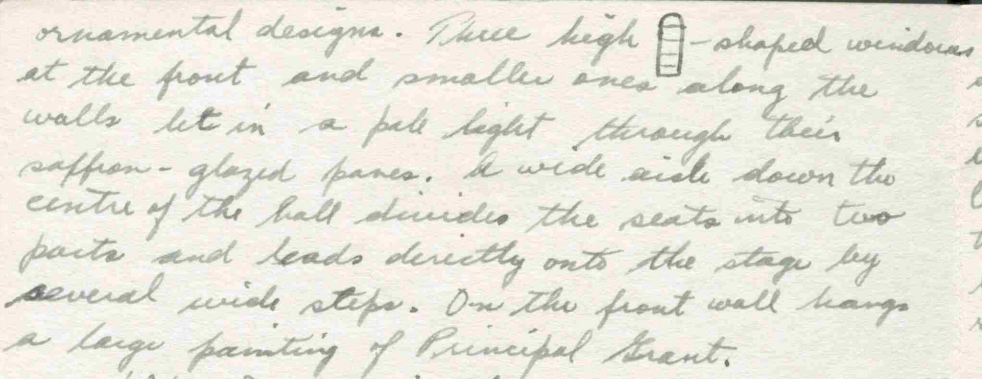 ornamental designs. Three high -shaped windows
at the front and smaller ones along the
walls let in a pale light through their
saffron-glazed panes. A wide aisle down the
centre of the hall divides the seats into two
parts and leads directly onto the stage by
several wide steps. On the front wall hangs
a large painting of Principal Grant.